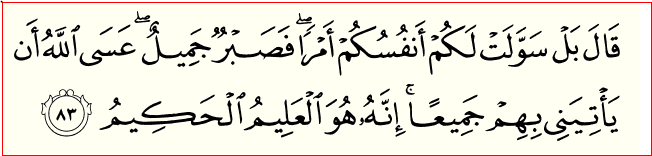 قَالَ بَلۡ سَوَّلَتۡ لَكُمۡ أَنفُسُكُمۡ أَمۡرٗاۖ فَصَبۡرٞ جَمِيلٌۖ عَسَى ٱللَّهُ أَن
يَأۡتِيَنِي بِهِمۡ جَمِيعًاۚ إِنَّهُۥ هُوَ ٱلۡعَلِيمُ ٱلۡحَكِيمُ ٨٣